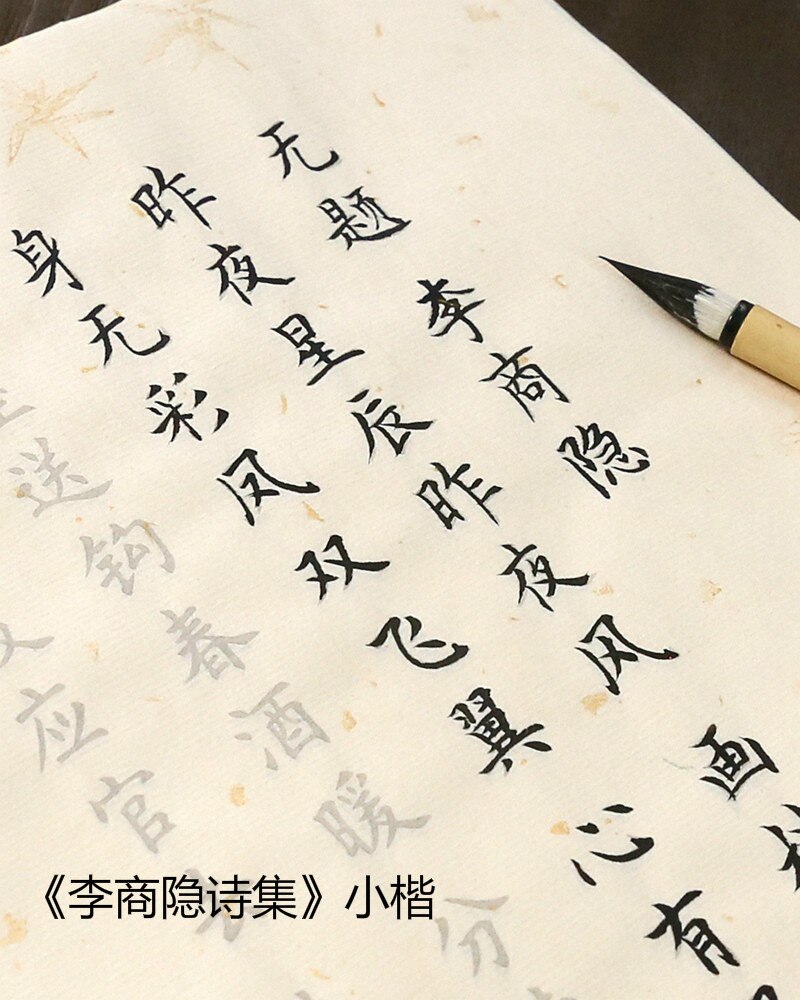 无题 李商隐
昨夜星辰昨夜风 画
身无彩凤双飞翼 心有
送钩春酒暖 分
应官
《李商隐诗集》小楷